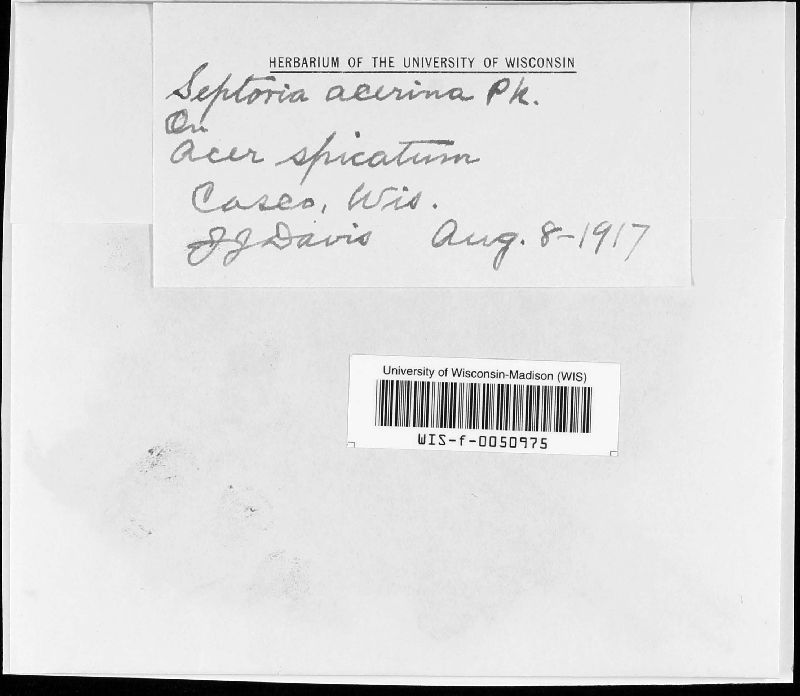 HERBARIUM OF THE UNIVERSITY OF WISCONSIN
Septoria acerina Pk.
On
Acer spicatum
Casco, Wis.
JJ Davis Aug. 8-1917
University of Wisconsin-Madison (WIS)
WIS-f-0050975